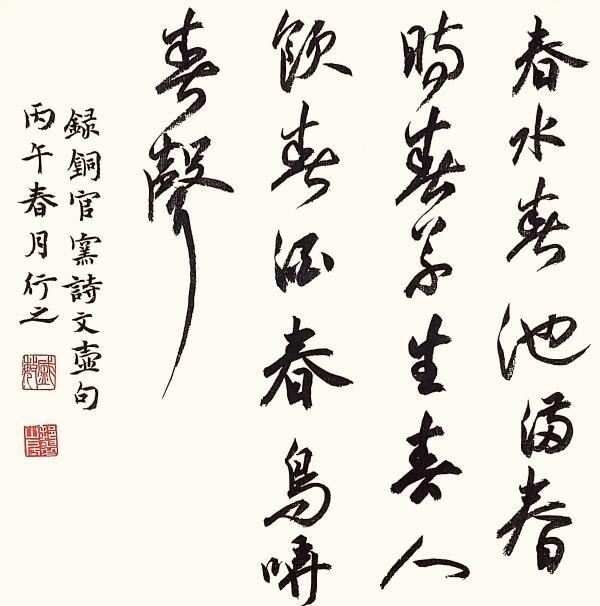 春水春池满春
時春草生春人
飲春酒春鳥哢
春聲
録銅官窯詩文壺句
丙午春月行之